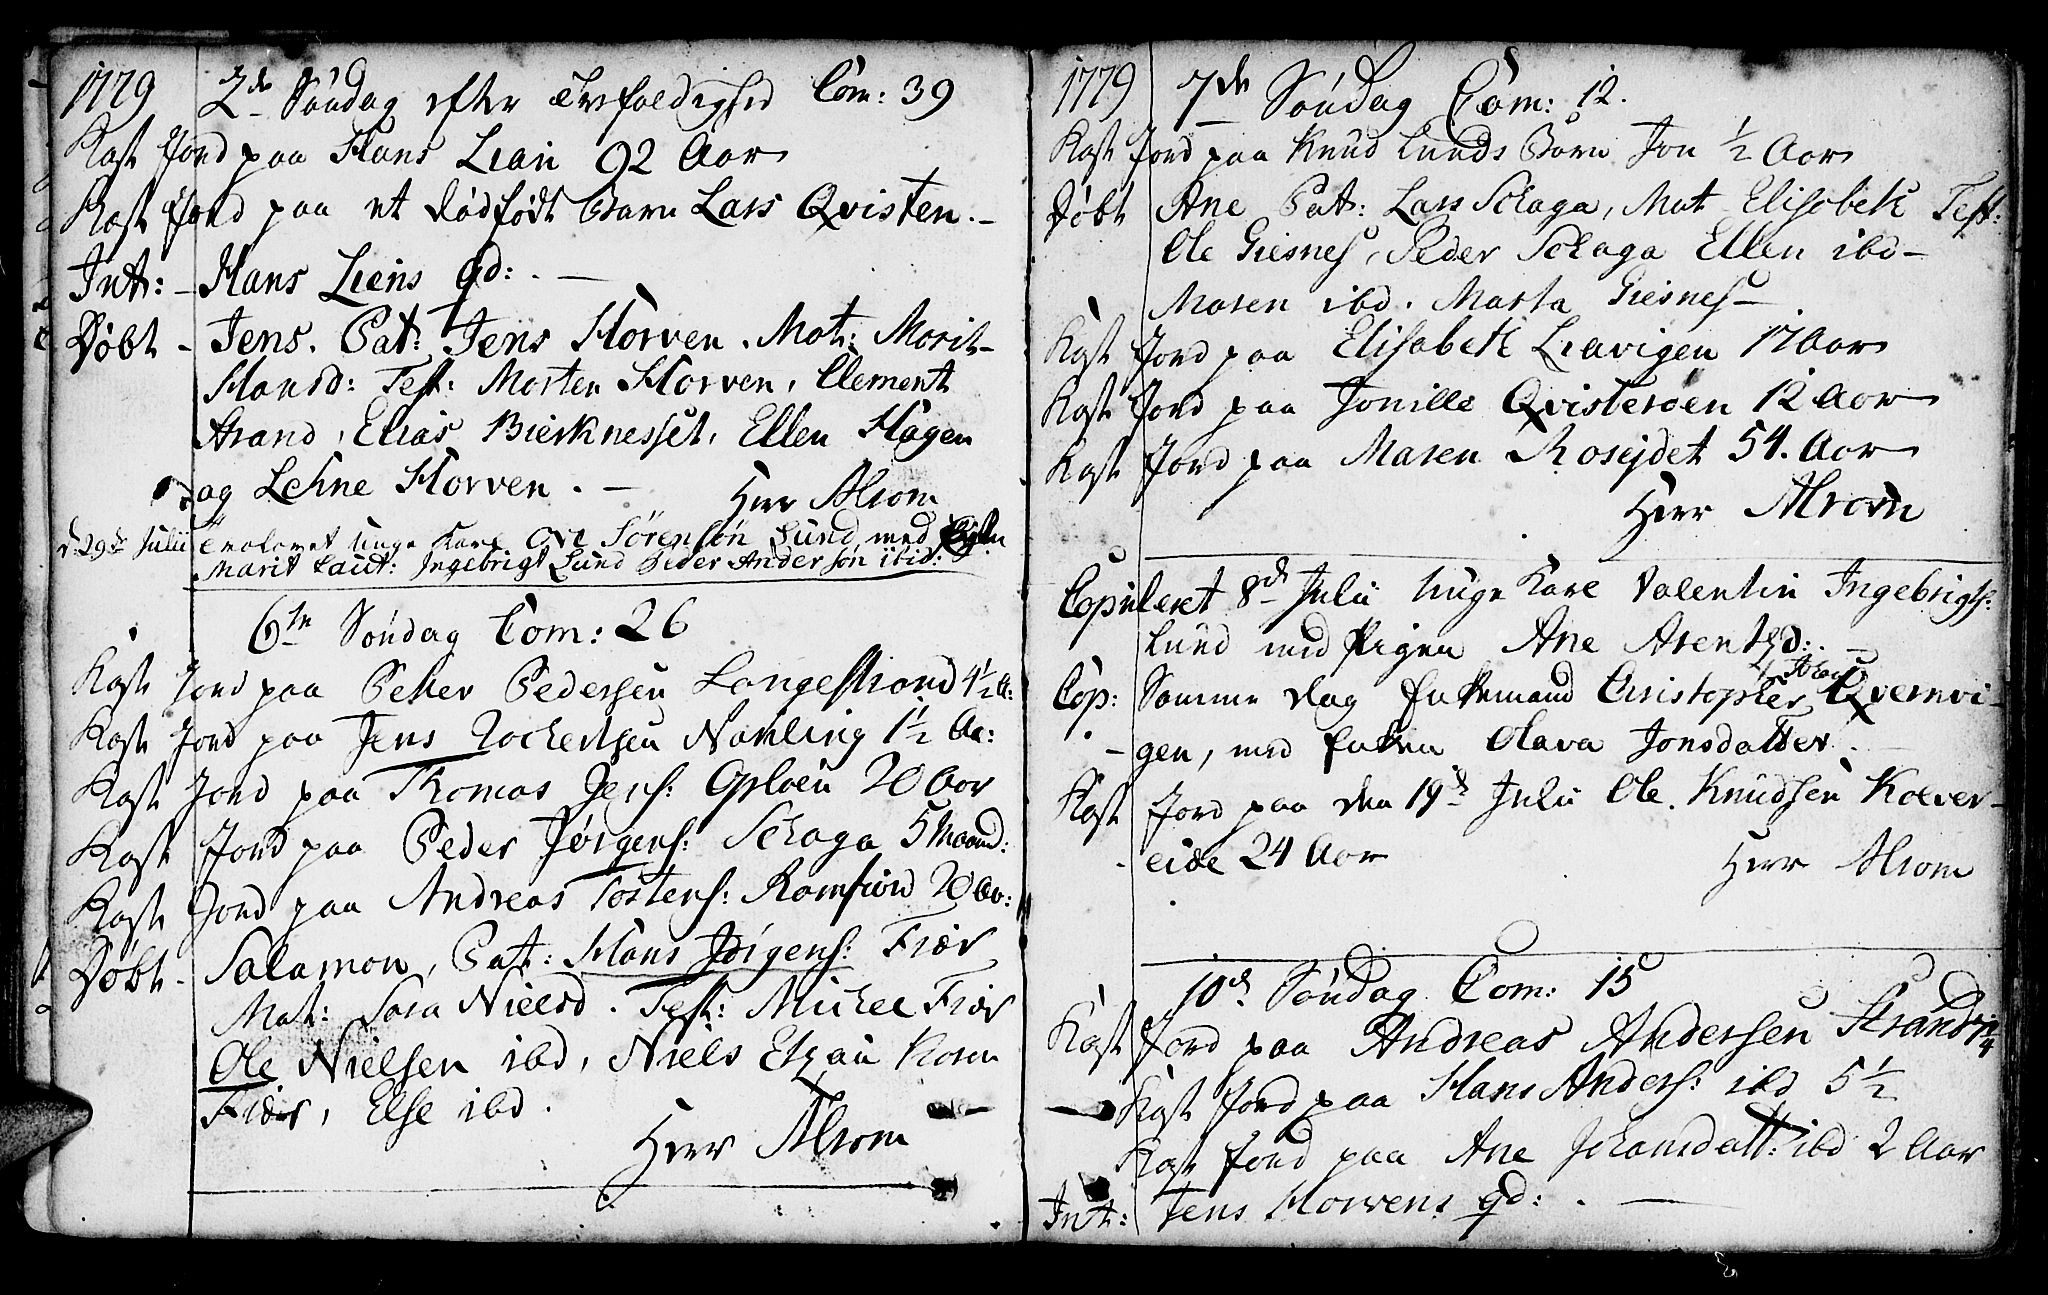 1779 2de Søndag efter Trefoldighed Com: 39
Kast Jord paa Hans Lian 92 Aar
Kast Jord paa et dødfødt Barn Lars Qvisten. -
Int: - Hans Liens qd: . —
Døbt - Jens. Pat: Jens Horven. Mot: Marit
Hansd: Test: Morten Horven, Clement
Strand, Elias Bierknesset, Ellen Hagen
og Lehne Horven . — Herr Alrom
d. 29de Julii trolovet unge Karl Ole Sørensøn Lund med Pigen
Marit Caut: Ingebrigt Lund Peder Andersøn ibid:
6te Søndag Com: 26
Kast Jord paa Peter Pedersen Langestrand 4½ A:
Kast Jord paa Jens Zachertsen Navling 1½ Aa:
Kast Jord paa Thomas Jens: Opløen 20 Aar
Kast Jord paa Peder Jørgens: Schaga 5 Maand:
Kast Jord paa Andreas Tostens: Ramfiord 20 Aa:
Døbt - Salamon, Pat: Hans Jørgens: Fiær
Mot: Sara Nielsd. Test: Michel Fiær
Ole Nielsen ibd, Niels Etzau Karen
Fiær, Else ibd.
Herr Alrom
1779 7de Søndag Com: 12.
Kast Jord paa Knud Lunds Barn Jon ½ Aar
Døbt Ane Pat: Lars Schaga, Mot Elisabeth Test:
Ole Giesnes, Peder Schaga Ellen ibd -
Maren ibd. Marta Giesnes -
Kast Jord paa Elisabeth Liavigen 17 Aar
Kast Jord paa Jonille Qvisterøen 12 Aar
Kast Jord paa Maren Rosejdet 54. Aar
Herr Alrom
Copuleret 8de Julii Unge Karl Valentin Ingebrigts:
Lund med Pigen Ane Arentzd: . -
Cop: Samme Dag Enkemand Christopher Qvernvi-
- gen, med Enken Olava Jonsdatter. -
Kast Jord paa den 19de Julii Ole Knudsen Kolver-
- eide 24 Aar Herr Alrom
10de Søndag Com: 15
Kast Jord paa Andreas Andersen Strand
Kast Jord paa Hans Anders: ibd 5½
Kast Jord paa Ane Johansdatt: ibd 2 Aar
Int: Jens Horvens qd: . —